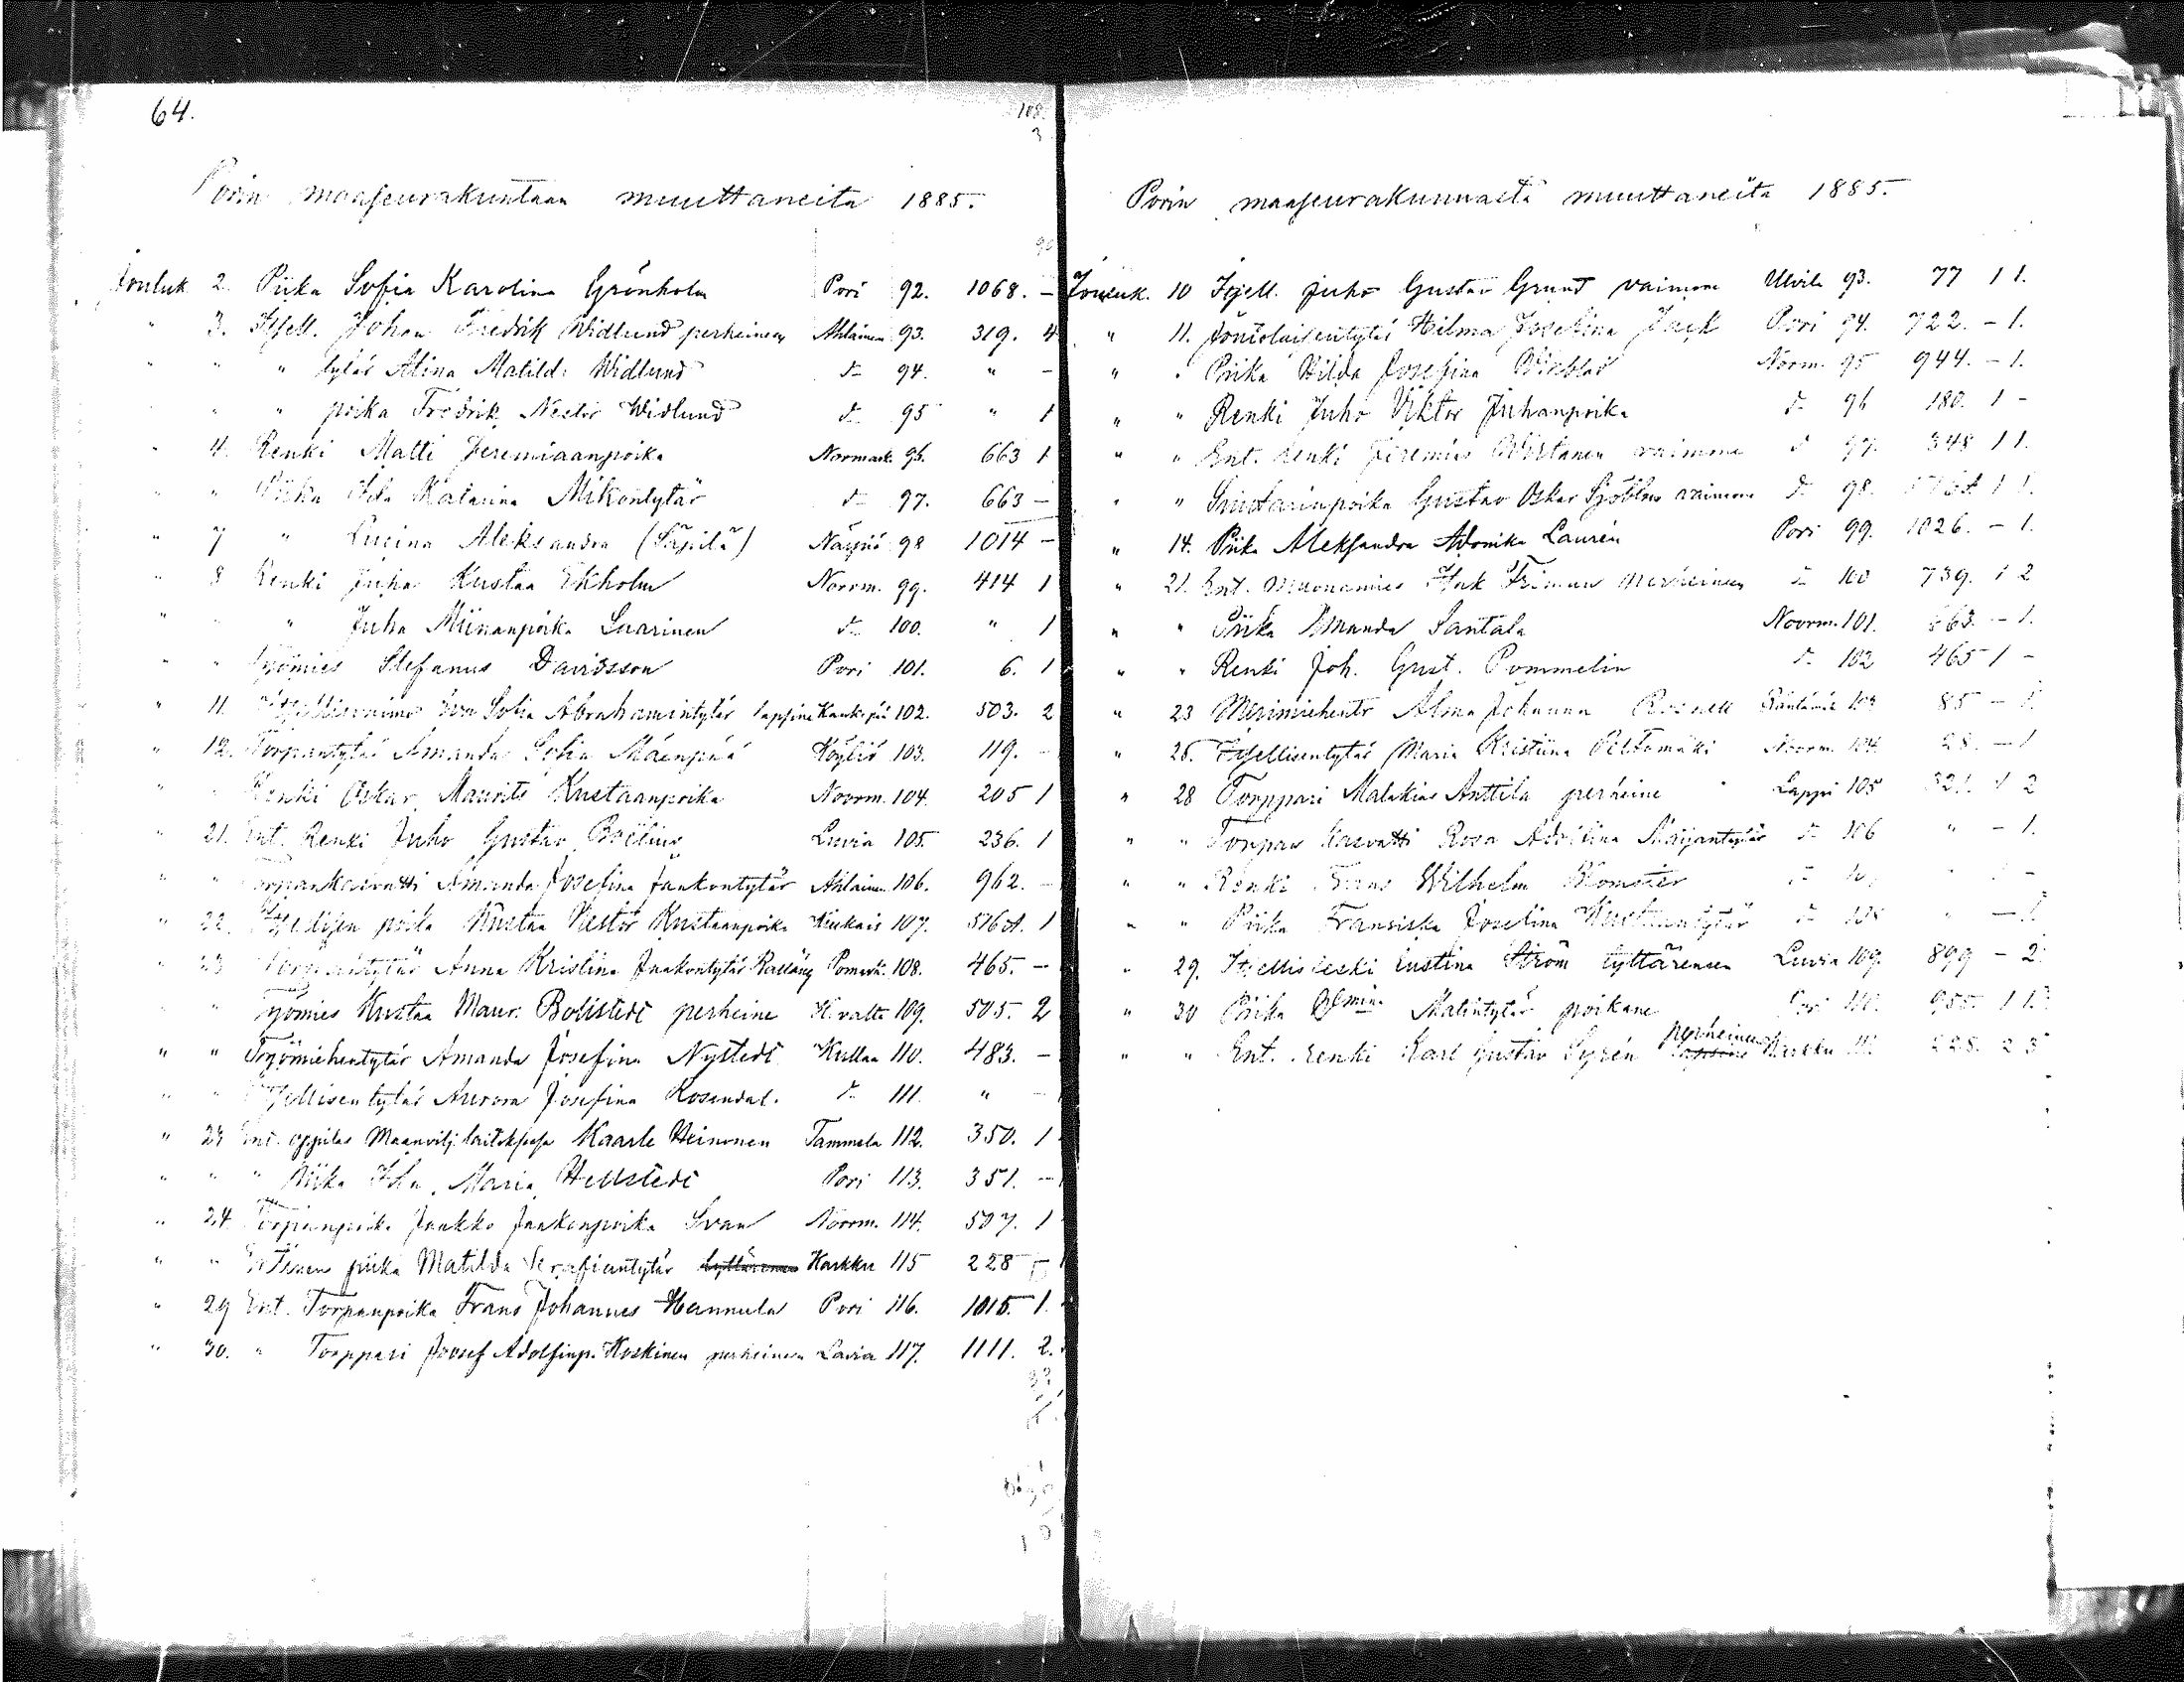 64.
108.
3
Porin maaseurakuntaan muuttaneita 1885.
Jouluk 2. Piika Sofia Karolina Grönholm Pori 92. 1068. -
" 3. Itsell. Johan Fredrik Widlund perheineen Ahlainen 93. 319. 4
" " " tytär Alina Matild. Widlund d:o 94. " -
" " " poika Fredrik Nestor Widlund d:o 95 " 1
" 4. Renki Matti Jeremiaanpoika Normark. 96. 663 1
" " Piika Ida Katarina Mikontytär d:o 97. 663 -
" 7 " Lucina Aleksandra (Säpilä) Nakkila 98 1014 -
" 8 Renki Juha Kustaa Ekholm Norrm. 99. 414 1
" " " Juha Miinanpoika Saarinen d:o 100. " 1
" " Työmies Stefanus Davidsson Pori 101. 6. 1
" 11. Itsellisvaimo Eva Sofia Abrahamintytär lapsine Kankspää 102. 503. 2
" 12. Torpantytär Amanda Sofia Mäenpää Köyliö 103. 119. -
" " Renki Oskar Maurits Kustaanpoika Noorm. 104. 205 1
" 21. Ent. Renki Juho Gustav Luvia 105. 236. 1
" " Torpankasvatti Amanda Josefina Jaakontytär Ahlainen 106. 962. -
" 22. Itsellisen poika Kustaa Nestor Kustaanpoika Kiukais 107. 576 1
" 23 Torpantytär Anna Kristina Jaakontytär Pomark. 108. 465. -
" " Työmies Kustaa Maur. Bollstedt perheine 109. 505. 2
" " Työmiehentytär Amanda Josefina Nystedt Kullaa 110. 483. -
" " Itsellisentytär Aurora Josefina Rosendal. d:o 111. " -
" 23 Ent. oppilas Maanvilj. laitoksessa Kaarle Heinonen Tammela 112. 350. 1
" " " Piika Ida Maria Hellstedt Pori 113. 351. -
" 24. Torpanpoika Jaakko Jaakonpoika Svan Norrm. 114. 507. 1
" " Entinen piika Matilda Serafiantytär tyttärensä Karkku 115 228 -
" 29 Ent. Torpanpoika Frans Johannes Hannula Pori 116. 1015. 1.
" 30. " Torppari Joosef Adolfinp. Koskinen perheineen Lavia 117. 1111. 2.
Porin maaseurakunnasta muuttaneita 1885.
Jouluk. 10 Itsell. Juho Gustav Grund vaimone Ulvila 93. 77 1 1.
" 11. Hilma Josefina Jack Pori 94. 722. - 1.
" " Piika Hilda Josefina Norm. 95 944. - 1.
" " Renki Juho Viktor Juhanpoika d:o 96 180. 1 -
" " Ent. renki Jeremias vaimone d:o 97. 348 1 1.
" " Gustav Oskar Sjöblom vaimone d:o 98. 1 1.
" 14. Piika Aleksandra Adonika Laurén Pori 99. 1026. - 1.
" 21. Ent. perheineen d:o 100 739. 1 2
" " Piika Amanda Santala Noorm. 101. 663. - 1.
" " Renki Joh. Gust. Pommelin d:o 102 465 1 -
" 23 Merimiehentr Alma Johanna 103 85 - 1.
" 26. Itsellisentytär Maria Kristiina Peltomäki Noorm. 104. 28. - 1
" 28 Torppari Malakias Anttila perheine Lappi 105 321. 1 2
" " Torpan kasvatti Rosa Adolfina Maijantytär d:o 106 " - 1.
" " Renki Frans Wilhelm Blomster d:o " 1 -
" " Piika Fransiska Josefina Kustaantytär d:o 108 " - 1.
" 29. Itsellisleski Eustina Ström tyttärensä Luvia 109. 899 - 2.
" 30 Piika Matintytär poikane Pori 110. 955. 1 1.
" " Ent. renki Karl Gustav Syrén perheineen lapsine Karkku 111. 228. 2 3